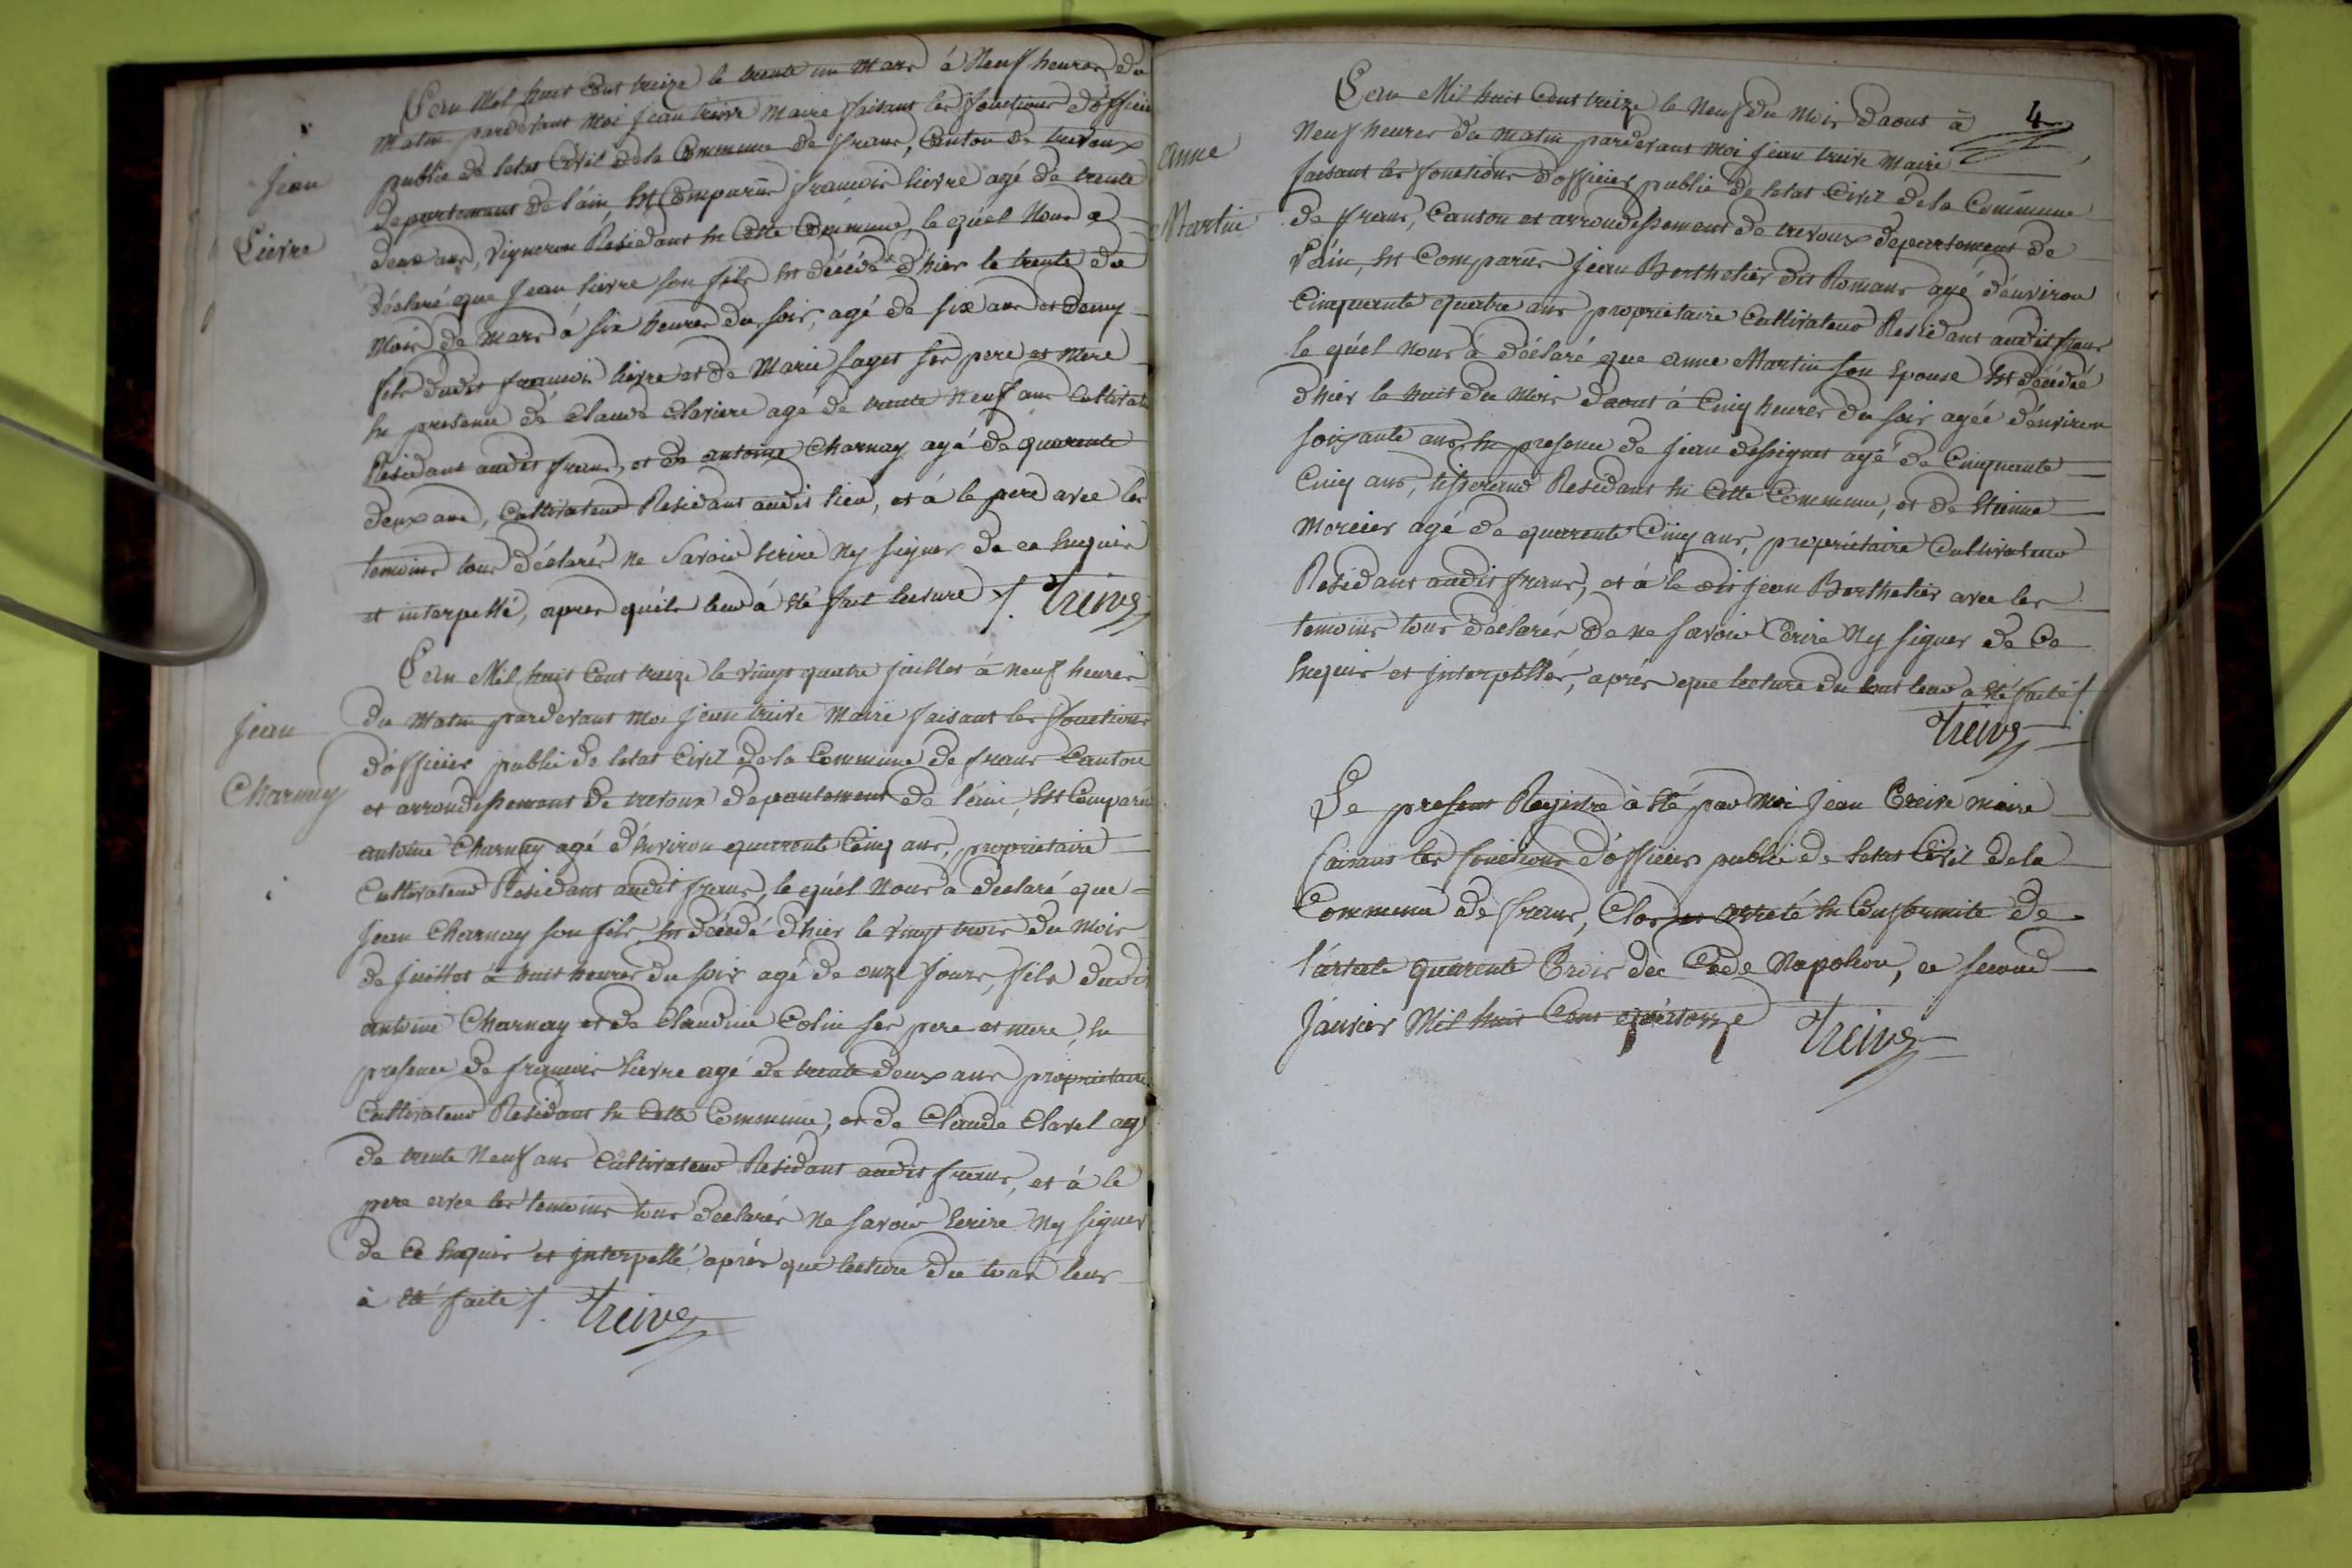 Jean
Lievre
L'an Mil huit Cent treize le trente un Mars à Neuf heures du
Matin pardevant Moi Jean treive Maire faisant les fonctions d'officier
public de letat Civil dela Commune de frans, Canton de trevoux
departement de l'ain Est Comparus francois lievre agé de trente
deux ans, Vigneron Résidant En Cette Commune, le qúel Nous a
déclaré que Jean lievre son fils Est décédé d'hier le trente du
Mois de Mars à six heures du soir, agé de six ans et demy
fils dudit francois lievre et de Marie saget ses pere et Mere
En presence de Claude Claviere agé de trente Neuf ans Cultivateur
Résidant audit frans, et de antoine Charnay agé de quarente
deux ans, Cultivateur Residant audit lieu, et à le pere avec les
temoins tous déclarés Ne Savoir Ecrire Ny signer de ce Enquis
et interpellé, apres qu'ils leur à Eté fait lecture /. Treive
Jean
Charnay
L'an Mil huit Cent treize le vingt quatre juillet à neuf heures
du Matin pardevant Moi Jean treive Maire faisant les fonctions
d'officier public de letat Civil dela Commune de frans Canton
et arrondissement de trevoux departement de l'ain, Est Comparu
antoine Charnay agé d'Environ quarente Cinq ans, propriétaire
Cultivateur Residant audit frans, le qúel Nous a declaré que
Jean Charnay son fils Est décédé d'hier le vingt trois du Mois
de Juillet à huit heures du soir agé de onze Jours, fils dudit
antoine Charnay et de Claudine Colin ses pere et mere, En
presence de francois lievre agé de trente deux ans propriétaire
Cultivateur Residant En Cette Commune, et de Claude Clavel agé
de trente Neuf ans Cultivateur Residant audit frans, et à le
pere avec les temoins tous declarés Ne savoir Ecrire Ny signer
de Ce Enquis et Interpellé après que lecture du tout leur
à Eté faite /. Treive
4
anne
Martin
L'an Mil huit Cent treize le Neuf du Mois daout à
Neuf heures du matin pardevant Moi Jean treive Maire
faisant les fonctions d'officier public de letat Civil dela Commune
de frans, Canton et arrondissement de trevoux departement de
l'ain, Est Comparus Jean Berthelier dit Romans agé d'environ
Cinquante quatre ans propriétaire Cultivateur Residant audit frans
le qúel nous à déclaré que anne Martin son Epouse Est décédée
d'hier le huit du Mois daout à Cinq heures du soir agée d'environ
soixante ans, En presence de Jean dessignes agé de Cinquante
Cinq ans, tisserand Residant En Cette Commune, et de Etienne
Mercier agé de quarente Cinq ans, propriétaire Cultivateur
Residant audit frans, et à le dit Jean Berthelier avec les
temoins tous déclarés de ne savoir Ecrire Ny signer de Ce
Enquis et Interpellés, après que lecture du tout leur a Eté faite /.
Treive
Le present Registre à Eté par Moi Jean Treive maire
faisant les fonctions d'officier public de letat Civil dela
Commune de frans, Clos et arreté En Conformité de
l'article quarente Trois du Code Napoléon, ce second
Janvier Mil huit Cent quatorze Treive